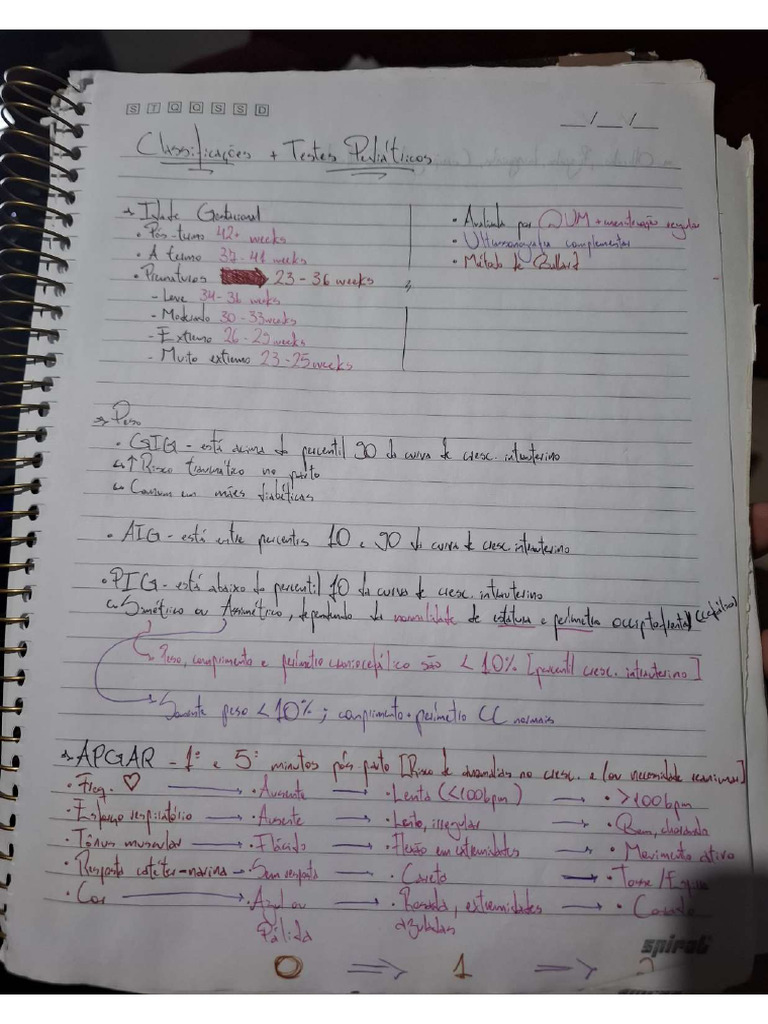 S T Q Q S S D
__/__/__
Classificações + Testes Pediátricos
→ Idade Gestacional
• Pós-termo 42+ weeks
• A termo 37-41 weeks
• Prematuros 23-36 weeks
- Leve 34-36 weeks
- Moderado 30-33 weeks
- Extremo 26-29 weeks
- Muito extremo 23-25 weeks
• Avaliada por DUM + menstruação regular
• Ultrassonografia complementar
• Método de Ballard
→ Peso
• GIG - está acima do percentil 90 da curva de cresc. intrauterino
↳ ↑ Risco traumático no parto
↳ Comum em mães diabéticas
• AIG - está entre percentis 10 e 90 da curva de cresc. intrauterino
• PIG - está abaixo do percentil 10 da curva de cresc. intrauterino
↳ Simétrico ou Assimétrico, dependendo da normalidade de estatura e perímetro occiptofrontal (cefálico)
→ Peso, comprimento e perímetro craniocefálico são < 10% [percentil cresc. intrauterino]
→ Somente peso < 10%; comprimento + perímetro CC normais
→ APGAR - 1º e 5º minutos pós parto [Risco de anomalias no cresc. e/ou necessidade reanimar]
• Freq. ♡ → • Ausente → • Lenta (<100bpm) → • >100bpm
• Esforço respiratório → • Ausente → • Leito, irregular → • Bem, chorando
• Tônus muscular → • Flácido → • Flexão em extremidades → • Movimento ativo
• Resposta catéter-narina → • Sem resposta → • Careta → • Tosse/Espirro
• Cor → • Azul ou Pálida → • Rosada, extremidades azuladas → • Corado
0 ⇒ 1 ⇒
spiral